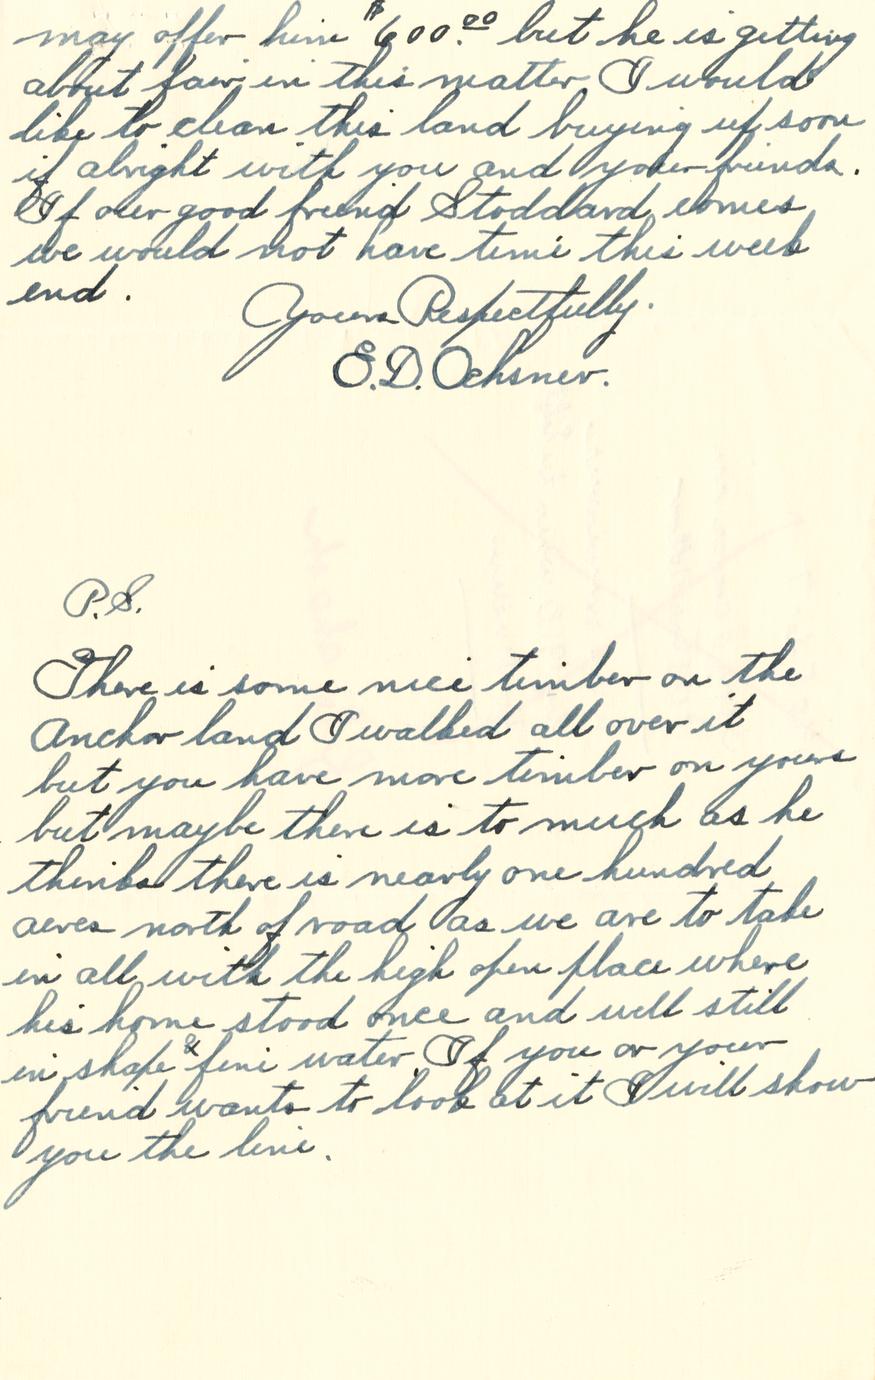 may offer him $600.00 but he is getting
about fair in this matter I would
like to clean this land buying up soon
if alright with you and your friends.
If our good friend Stoddard comes
we would not have time this week
end.
Yours Respectfully.
E.D. Ochsner.
P.S.
There is some nice timber on the
Anchor land I walked all over it
but you have more timber on yours
but maybe there is to much as he
thinks there is nearly one hundred
acres north of road as we are to take
in all with the high open place where
his home stood once and well still
in shape & fine water. If you or your
friend wants to look at it I will show
you the line.